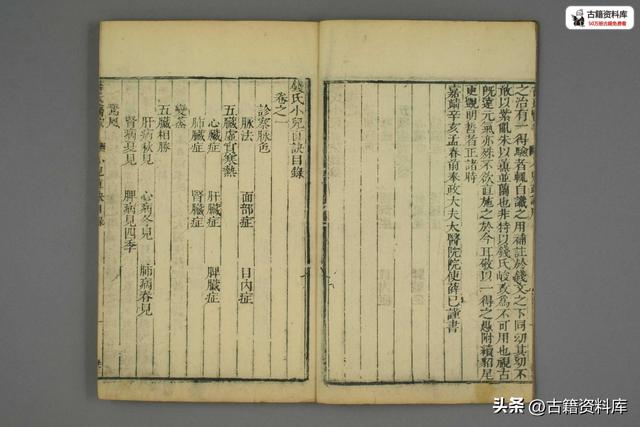 之治有一得驗者輒自識之用補註於錢文之下同幼其幼不
敢以紫亂朱以莠並蘭也非特以錢氏峻攻爲不可用也視古
既遠元氣亦殊不欲直施之於今耳敬以一得之愚附續貂尾
更覬明哲正諸時
嘉靖辛亥孟春前奉政大夫太醫院院使薛己謹書
錢氏小兒直訣目錄
卷之一
診察脉色
脉法 面部症 目內症
五臟虛實寒熱
心臟症 肝臟症 脾臟症
肺臟症 腎臟症
變蒸
五臟相勝
肝病秋見 心病冬見 肺病春見
腎病夏見 脾病見四季
驚風
古籍资料库
50万册古籍免费看
头条 @古籍资料库